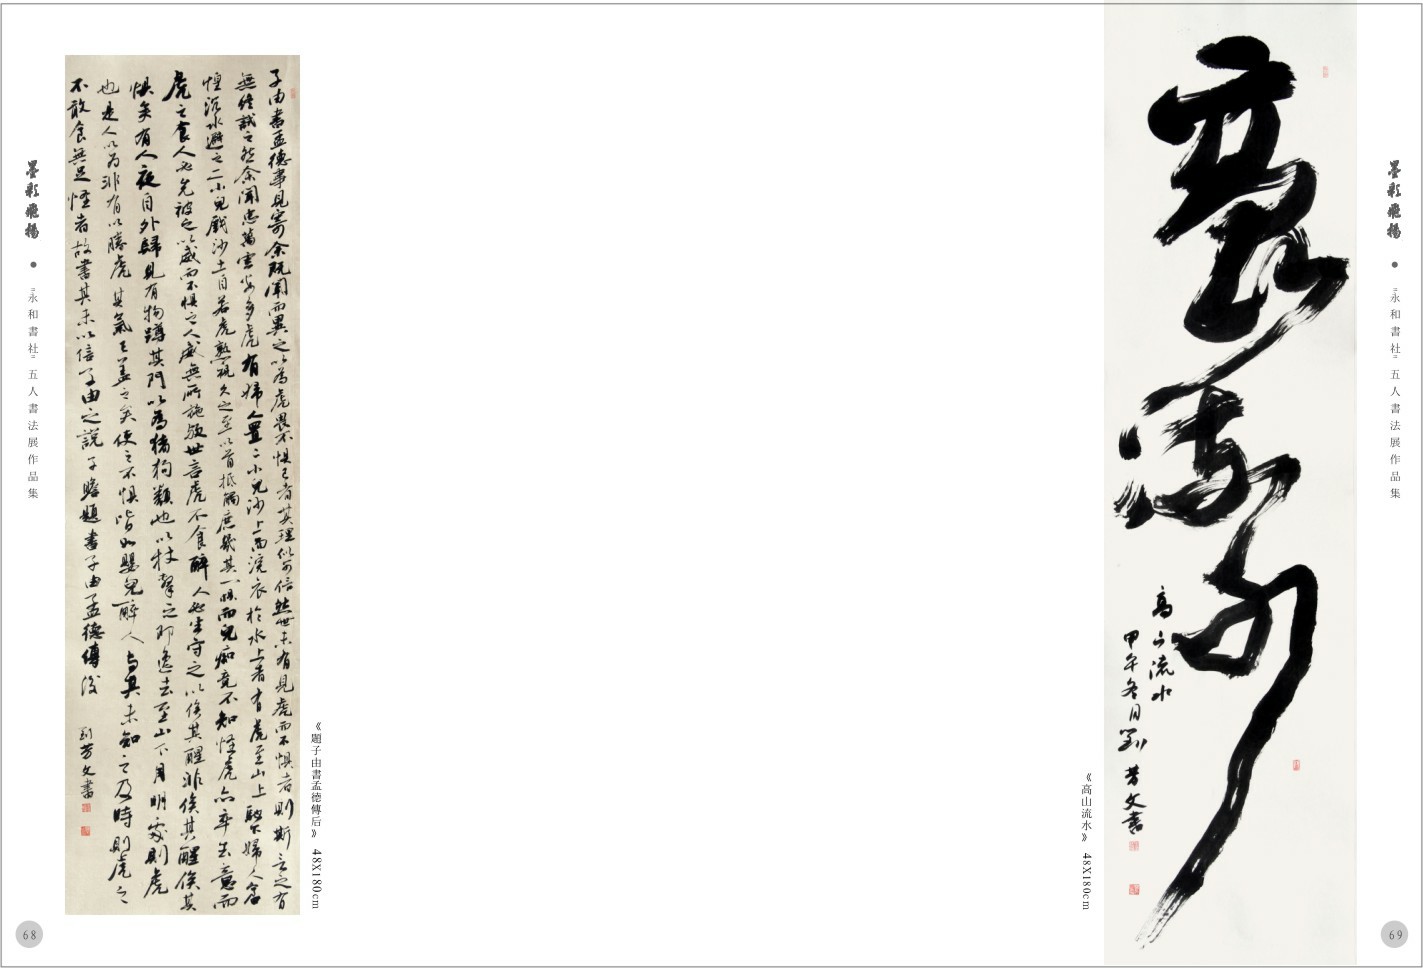 墨彩飛揚 ● "永和書社"五人書法展作品集
子由書孟德事見寄余既聞而異之以為虎畏不懼己者其理似可信然世未有見虎而不懼者則斯言之有
無終試之然余聞忠萬雲安多虎有婦人置二小兒沙上而浣衣於水上者有虎至山上馳下婦人倉
惶沉水避之二小兒戲沙土自若虎熟視久之至以首抵觸庶幾其一懼而兒痴竟不知怪虎亦卒去意而
虎之食人必先被之以威而不懼之人威無所施歟世言虎不食醉人必坐守之以俟其醒非俟其醒俟其
懼矣有人夜自外歸見有物蹲其門以為豬狗類也以杖擊之即逸去至山下月明處則虎
也是人以為非有以勝虎其氣已蓋之矣使之不懼皆如嬰兒醉人與其未知之及時則虎之
不敢食無足怪者故書其末以信子由之說 子瞻題書子由孟德傳後 劉芳文書
《題子由書孟德傳后》 48X180cm
68
高山流水
高山流水
甲午冬月劉芳文書
《高山流水》 48X180cm
墨彩飛揚 ● "永和書社"五人書法展作品集
69